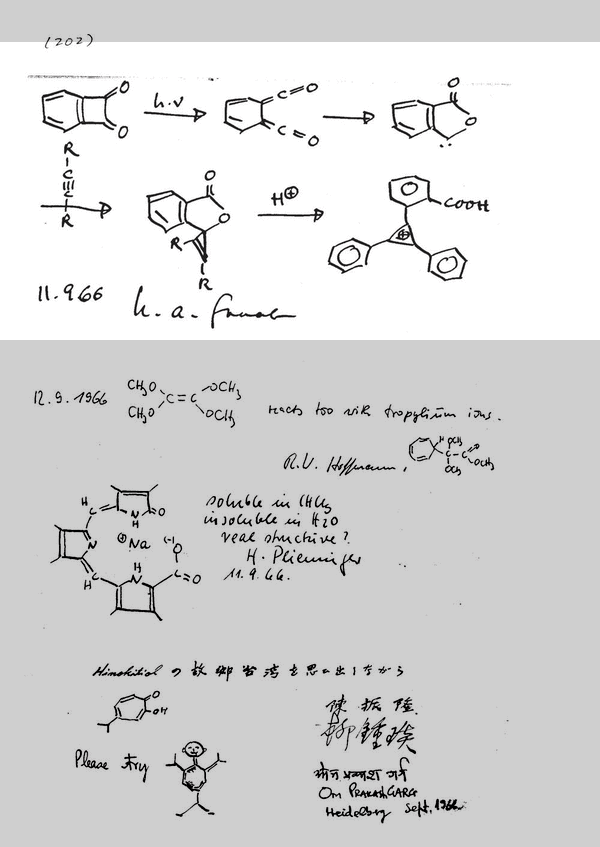 (202)
O
O
h.ν
C=O
C=O
O
O
R
C
C
R
O
O
R
R
H⊕
COOH
⊕
11.9.66
H. A.
12.9.1966
CH3O
CH3O
C=C
OCH3
OCH3
reacts too with tropylium ions.
R.W. Hoffmann,
H
OCH3
C
C
O
OCH3
OCH3
H
C
N
H
O
N
⊕Na
(-)
O
C=O
H
C
H
N
soluble in CHCl3
insoluble in H2O
real structure?
H. Plieninger
11.9.66.
Hinokitiol の故郷台湾を思い出しながら
O
OH
Please Try
陳振隆
柳鍾琰
ओम प्रकाश गर्ग
Om PRAKASH GARG
Heidelberg Sept. 1966